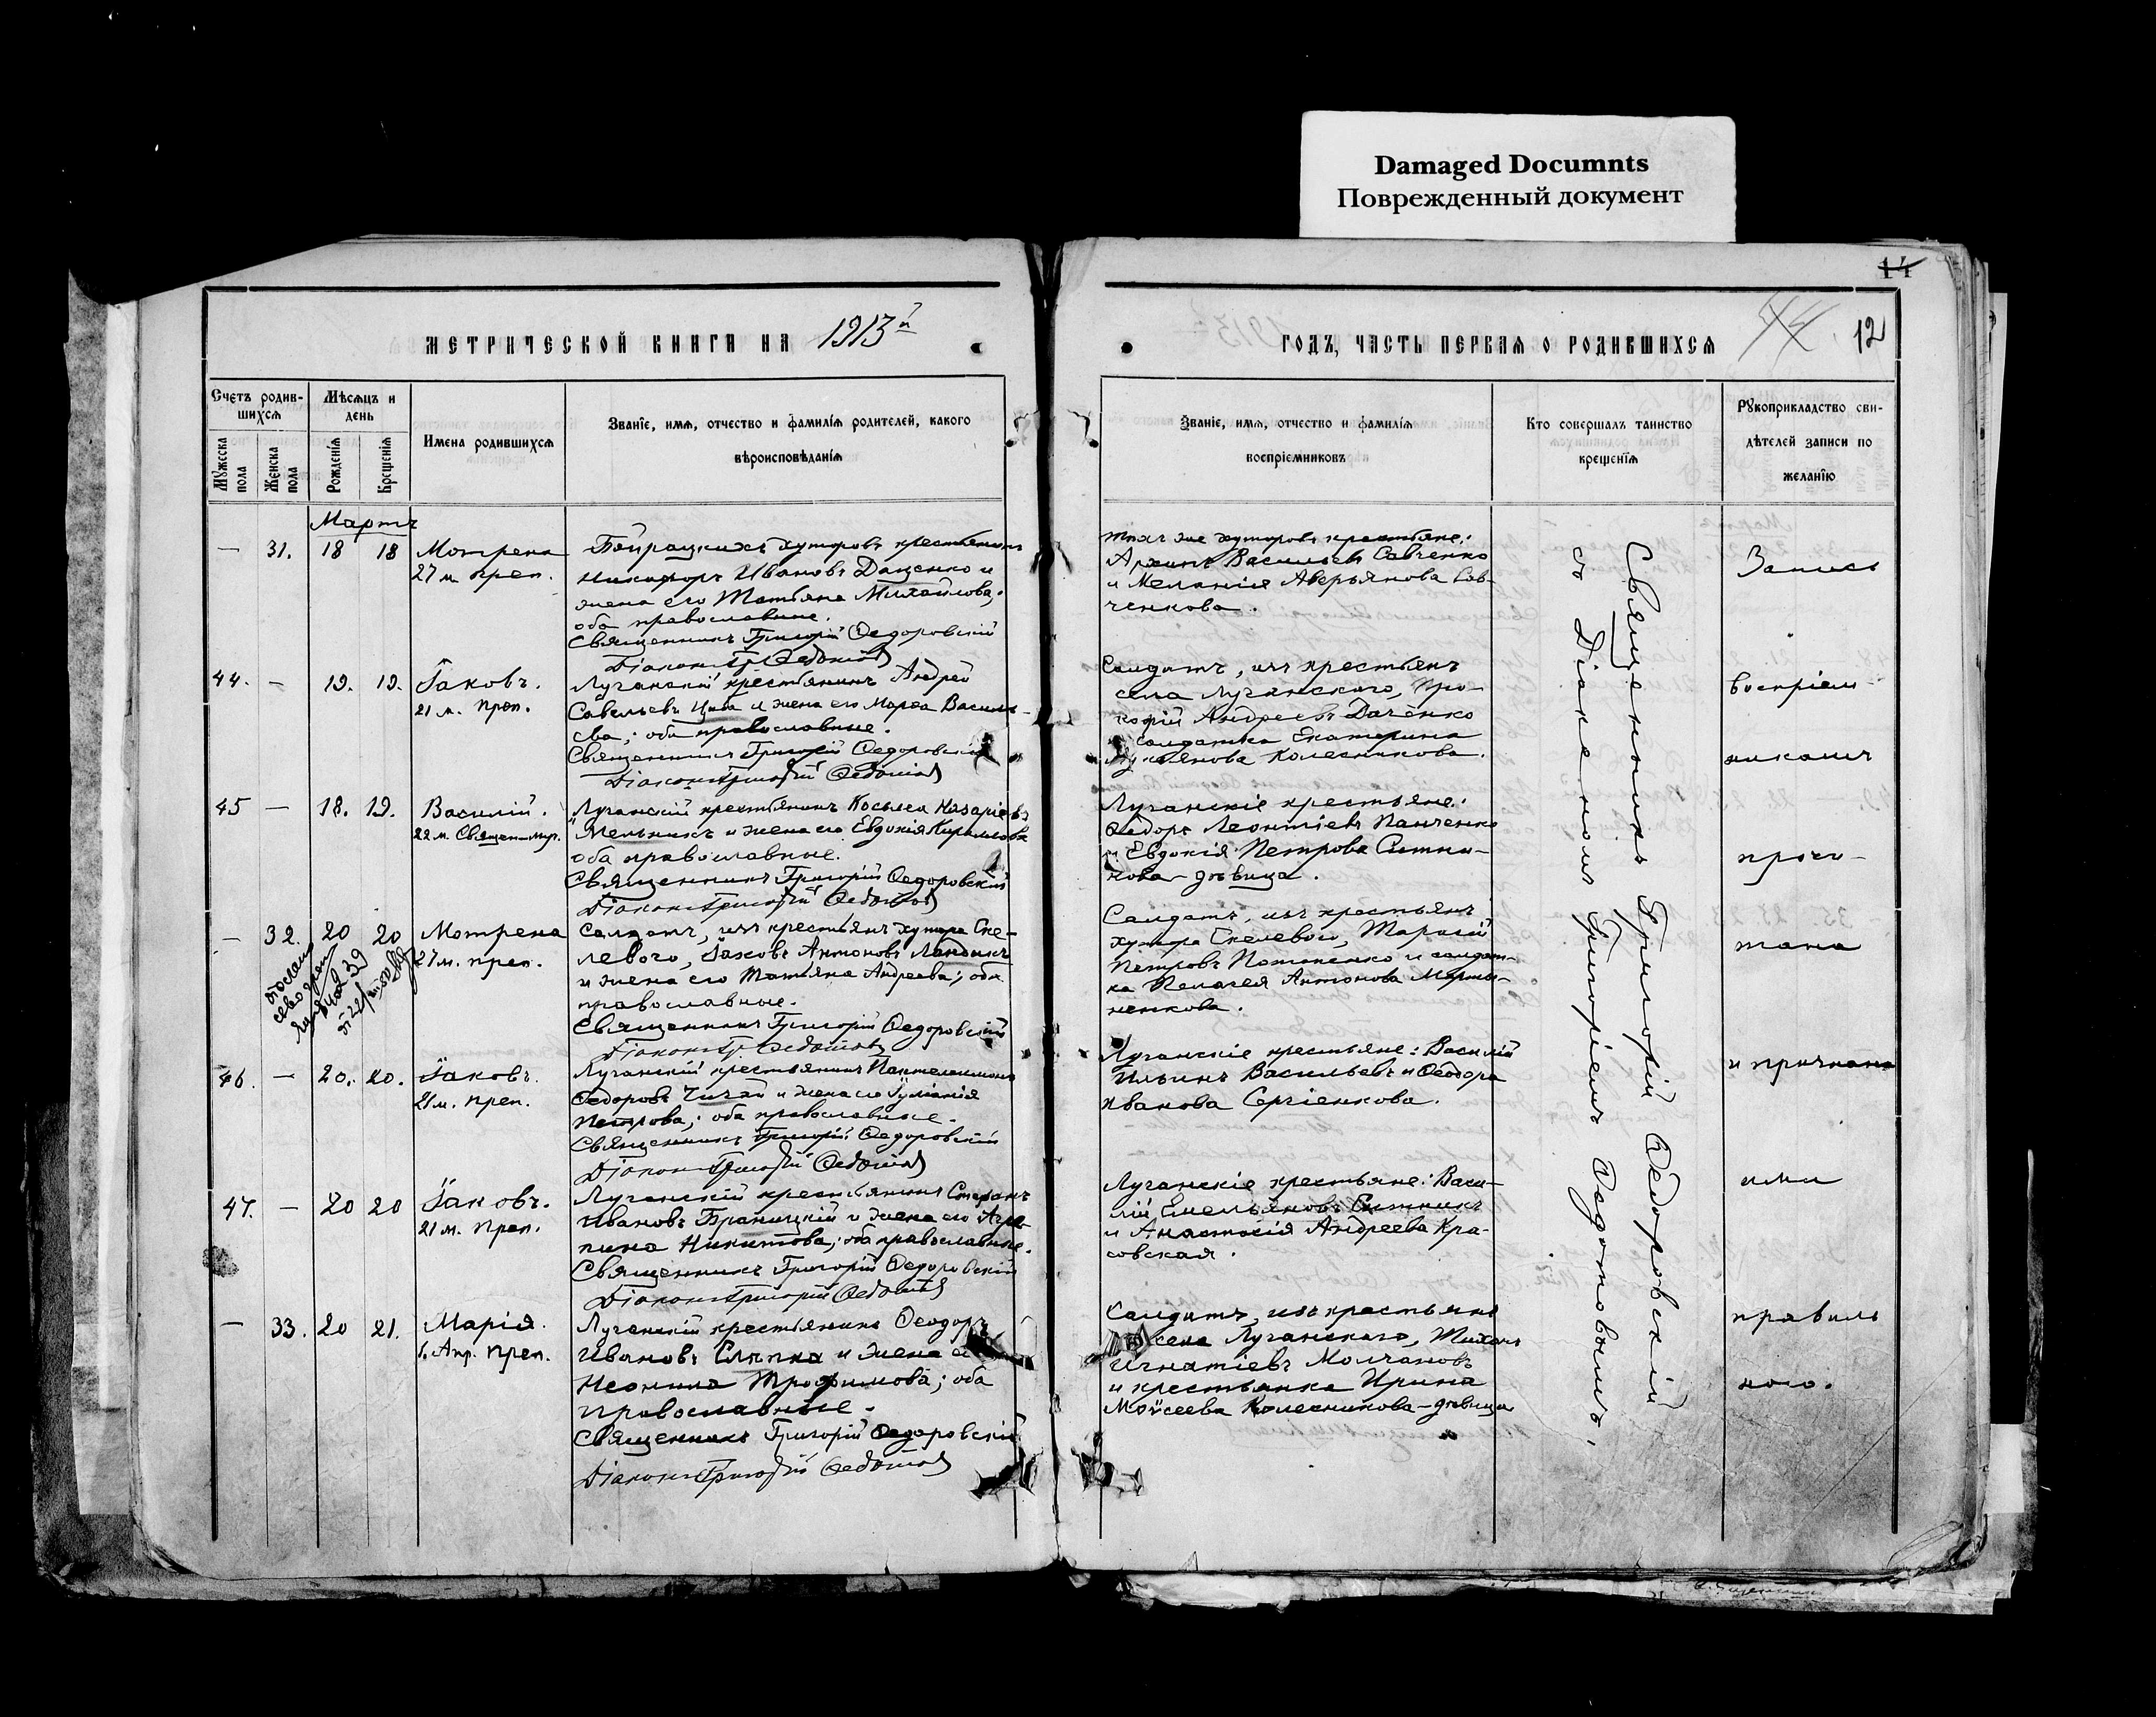 Damaged Documnts
Поврежденный документ
14
МЕТРИЧЕСКОЙ КНИГИ НА 1913й
ГОДЪ, ЧАСТЬ ПЕРВАЯ О РОДИВШИХСЯ
12
Счетъ родив-
шихся
Мѣсяцъ и
день
Мужеска
пола
Женска
пола
Рожденія
Крещенія
Имена родившихся
Званіе, имя, отчество и фамилія родителей, какого
вѣроисповѣданія
Званіе, имя, отчество и фамилія
воспріемниковъ
Кто совершалъ таинство
крещенія
Рукоприкладство сви-
дѣтелей записи по
желанію
Мартъ
— 31. 18 18 Мотрена
27 м. преп.
хуторовъ крестьянинъ
Никифоръ Ивановъ Даценко и
жена его Татьяна Михайлова;
оба православные.
Священникъ Григорій Ѳедоровскій
Діаконъ Гр. Ѳедотов
тѣхъ же хуторовъ крестьяне:
Архипъ Васильевъ Савченко
и Меланія Аверьянова Сав-
ченкова.
44. — 19. 19. Іаковъ.
21 м. преп.
Луганскій крестьянинъ Андрей
Савельевъ и жена его Марѳа Василь-
ева; оба православные.
Священникъ Григорій Ѳедоровскій
Діаконъ Григорій Ѳедотов
Солдатъ, изъ крестьянъ
села Луганскаго, Про-
кофій Андреевъ Даченко
солдатка Екатерина
Колесникова.
45 — 18. 19. Василій.
22 м. Священ-муч.
Луганскій крестьянинъ Косьма Назаріевъ
Мельникъ и жена его Евдокія Кириллова
оба православные.
Священникъ Григорій Ѳедоровскій
Діаконъ Григорій Ѳедотов
Луганскіе крестьяне:
Ѳедоръ Леонтіевъ Панченко
и Евдокія Петрова Ситни-
кова - дѣвица.
— 32. 20 20 Мотрена
27 м. преп.
Солдатъ, изъ крестьянъ хутора Ске-
левого, Іаковъ Антоновъ Ландикъ
и жена его Татьяна Андреева; оба
православные.
Священникъ Григорій Ѳедоровскій
Діаконъ Гр. Ѳедотовъ
Солдатъ, изъ крестьянъ
хутора Скелевого, Тарасій
Петровъ Потапенко и солдат-
ка Пелагея Антонова Марты-
ненкова.
46. — 20. 20. Іаковъ.
21 м. преп.
Луганскій крестьянинъ Пантелеимонъ
Ѳедоровъ Чигай и жена его Іуліанія
Петрова; оба православные.
Священникъ Григорій Ѳедоровскій
Діаконъ Григорій Ѳедотов
Луганскіе крестьяне: Василій
Ильинъ Васильевъ и Ѳеодора
Иванова Сергіенкова.
47. — 20 20 Іаковъ.
21 м. преп.
Луганскій крестьянинъ Стефанъ
Ивановъ Браницкій и жена его Агрип-
пина Никитова; оба православные.
Священникъ Григорій Ѳедоровскій
Діаконъ Григорій Ѳедотов
Луганскіе крестьяне: Васи-
лій Емельяновъ Ситникъ
и Анастасія Андреева Кра-
совская.
— 33. 20 21. Марія.
1. Апр. преп.
Луганскій крестьянинъ Ѳеодоръ
Ивановъ и жена его
Неонила Трофимова; оба
православные.
Священникъ Григорій Ѳедоровскій
Діаконъ Григорій Ѳедотов
Солдатъ, изъ крестьянъ
села Луганскаго, Тихонъ
Игнатіевъ Молчановъ
и крестьянка Ирина
Моисеева Колесникова - дѣвица
Священникъ Григорій Ѳедоровскій
съ Діакономъ Григоріемъ Ѳедотовымъ.
Запись
воспріем-
никамъ
прочи-
тана
и признана
ими
правиль
ною.